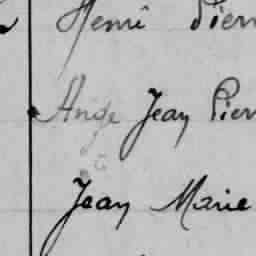 Henri Pierr
Ange Jean Pierr
Jean Marie